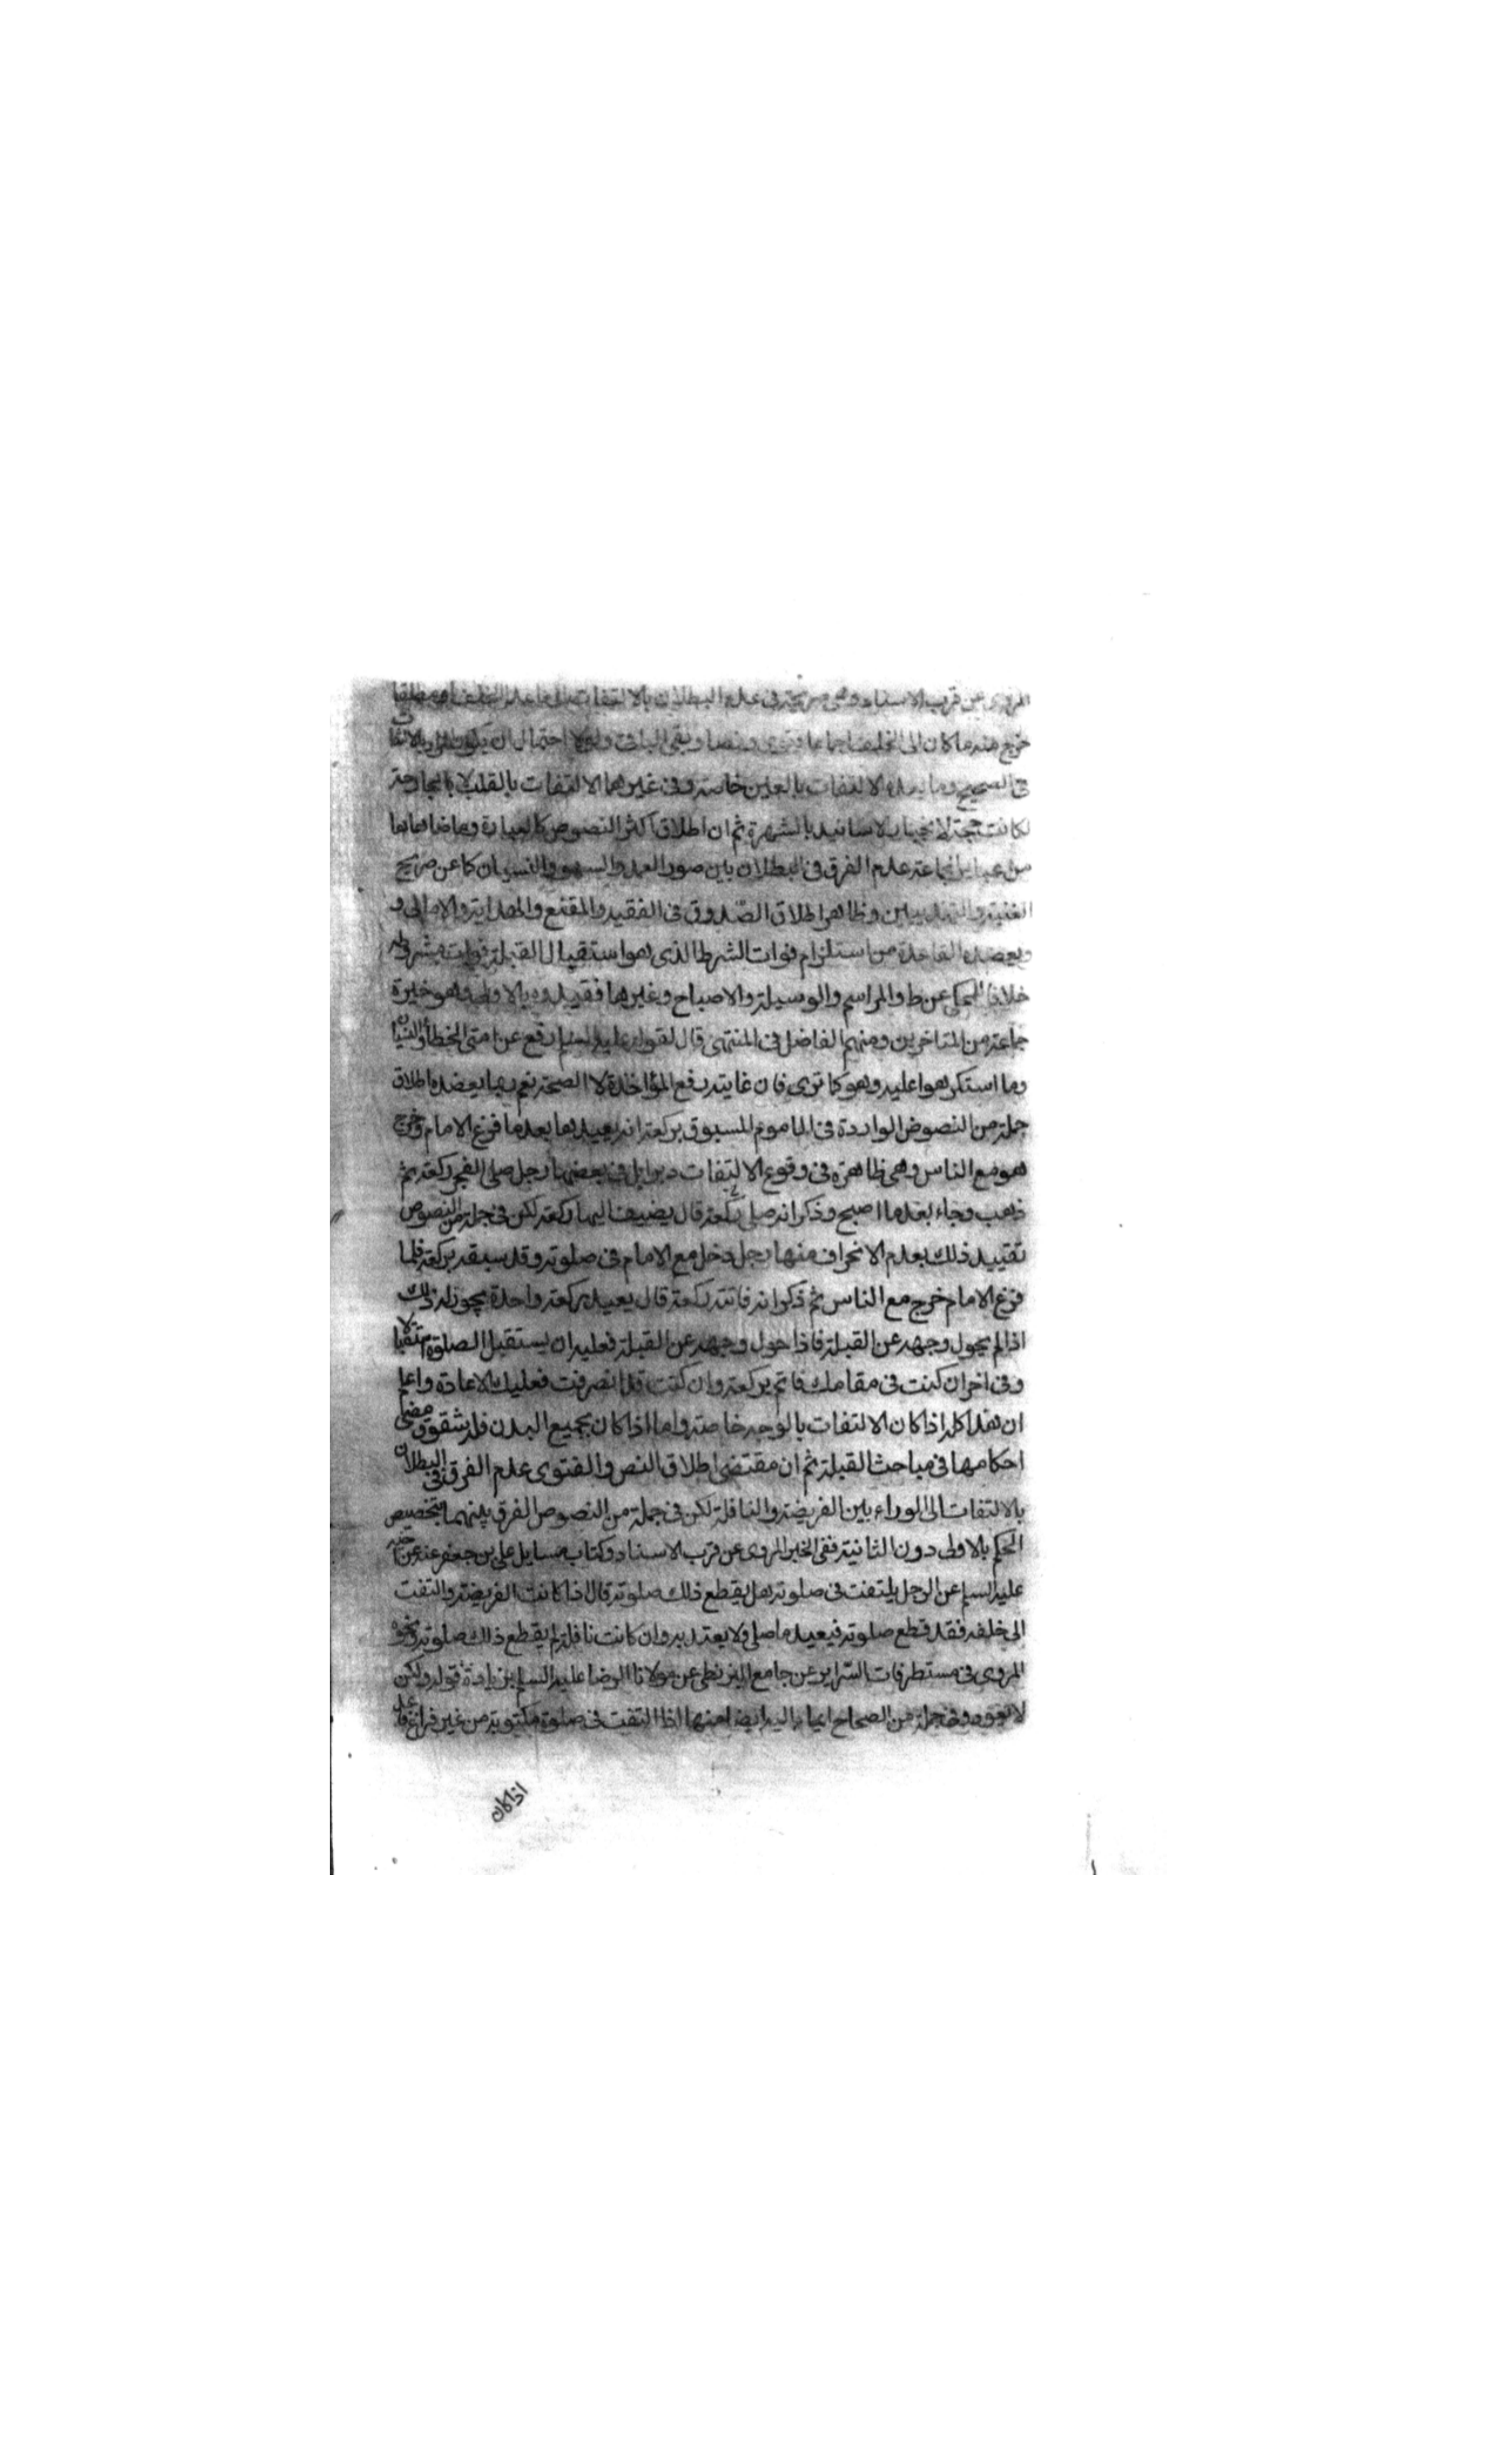 المروى عن قرب الاسناد وهى صريحة فى عدم البطلان بالالتفات الى ما عدا الخلف مطلقا
خرج منه ما كان الى الخلف اجماعا فتوى ونصا وبقى الباقى ولولا احتمال ان يكون المراد بالالتفات
فى الصحيح وما بعده الالتفات بالعين خاصة وفى غيرهما الالتفات بالقلب لا بالجارحة
لكانت حجة لانجبار الاسانيد بالشهرة ثم ان اطلاق اكثر النصوص كالعبارة وما ضاهاها
من عباير الجماعة عدم الفرق فى البطلان بين صور العمد والسهو والنسيان كما عن صريح
الغنية والتهذيبين وظاهر اطلاق الصدوق فى الفقيه والمقنع والهداية والامالى و
ويعضده القاعدة من استلزام فوات الشرط الذى هو استقبال القبلة فوات مشروطه
خلافا للمحكى عن ط والمراسم والوسيلة والاصباح وغيرها فقيدوه بالاول وهو خيرة
جماعة من المتاخرين ومنهم الفاضل فى المنتهى قال لقوله عليه السلم رفع عن امتى الخطأ والنسيان
وما استكرهوا عليه وهو كما ترى فان غايته رفع المؤاخذة لا الصحة نعم ربما يعضده اطلاق
جملة من النصوص الواردة فى الماموم المسبوق بركعة انه يعيدها بعد ما فرغ الامام وخرج
هو مع الناس وهى ظاهرة فى وقوع الالتفات دبرا بل فى بعضها رجل صلى الفجر ركعة ثم
ذهب وجاء بعد ما اصبح وذكر انه صلى ركعة قال يضيف اليها ركعة لكن فى جملة من النصوص
تقييد ذلك بعدم الانحراف منها رجل دخل مع الامام فى صلوته وقد سبقه بركعة فلما
فرغ الامام خرج مع الناس ثم ذكر انه فاتته ركعة قال يعيد ركعة واحدة يجوز له ذلك
اذا لم يحول وجهه عن القبلة فاذا حول وجهه عن القبلة فعليه ان يستقبل الصلوة استقبالا
وفى اخر ان كنت فى مقامك فاتم بركعة وان كنت قد انصرفت فعليك بالاعادة واعلم
ان هذا كله اذا كان الالتفات بالوجه خاصة واما اذا كان بجميع البدن فله شقوق مضى
احكامها فى مباحث القبلة ثم ان مقتضى اطلاق النص والفتوى عدم الفرق فى البطلان
بالالتفات الى الوراء بين الفريضة والنافلة لكن فى جملة من النصوص الفرق بينهما بتخصيص
الحكم بالاولى دون الثانية ففى الخبر المروى عن قرب الاسناد وكتاب مسايل على بن جعفر عنه عن اخيه
عليه السلم عن الرجل يلتفت فى صلوته هل يقطع ذلك صلوته قال اذا كانت الفريضة والتفت
الى خلفه فقد قطع صلوته فيعيد ما صلى ولا يعتد به وان كانت نافلة لم يقطع ذلك صلوته ونحوه
المروى فى مستطرفات السراير عن جامع البزنطى عن مولانا الرضا عليه السلم بزيادة قوله ولكن
لا يعود وفى جملة من الصحاح ايماء اليه ايضا منها اذا التفت فى صلوة مكتوبة من غير فراغ فاعد
اذا كان